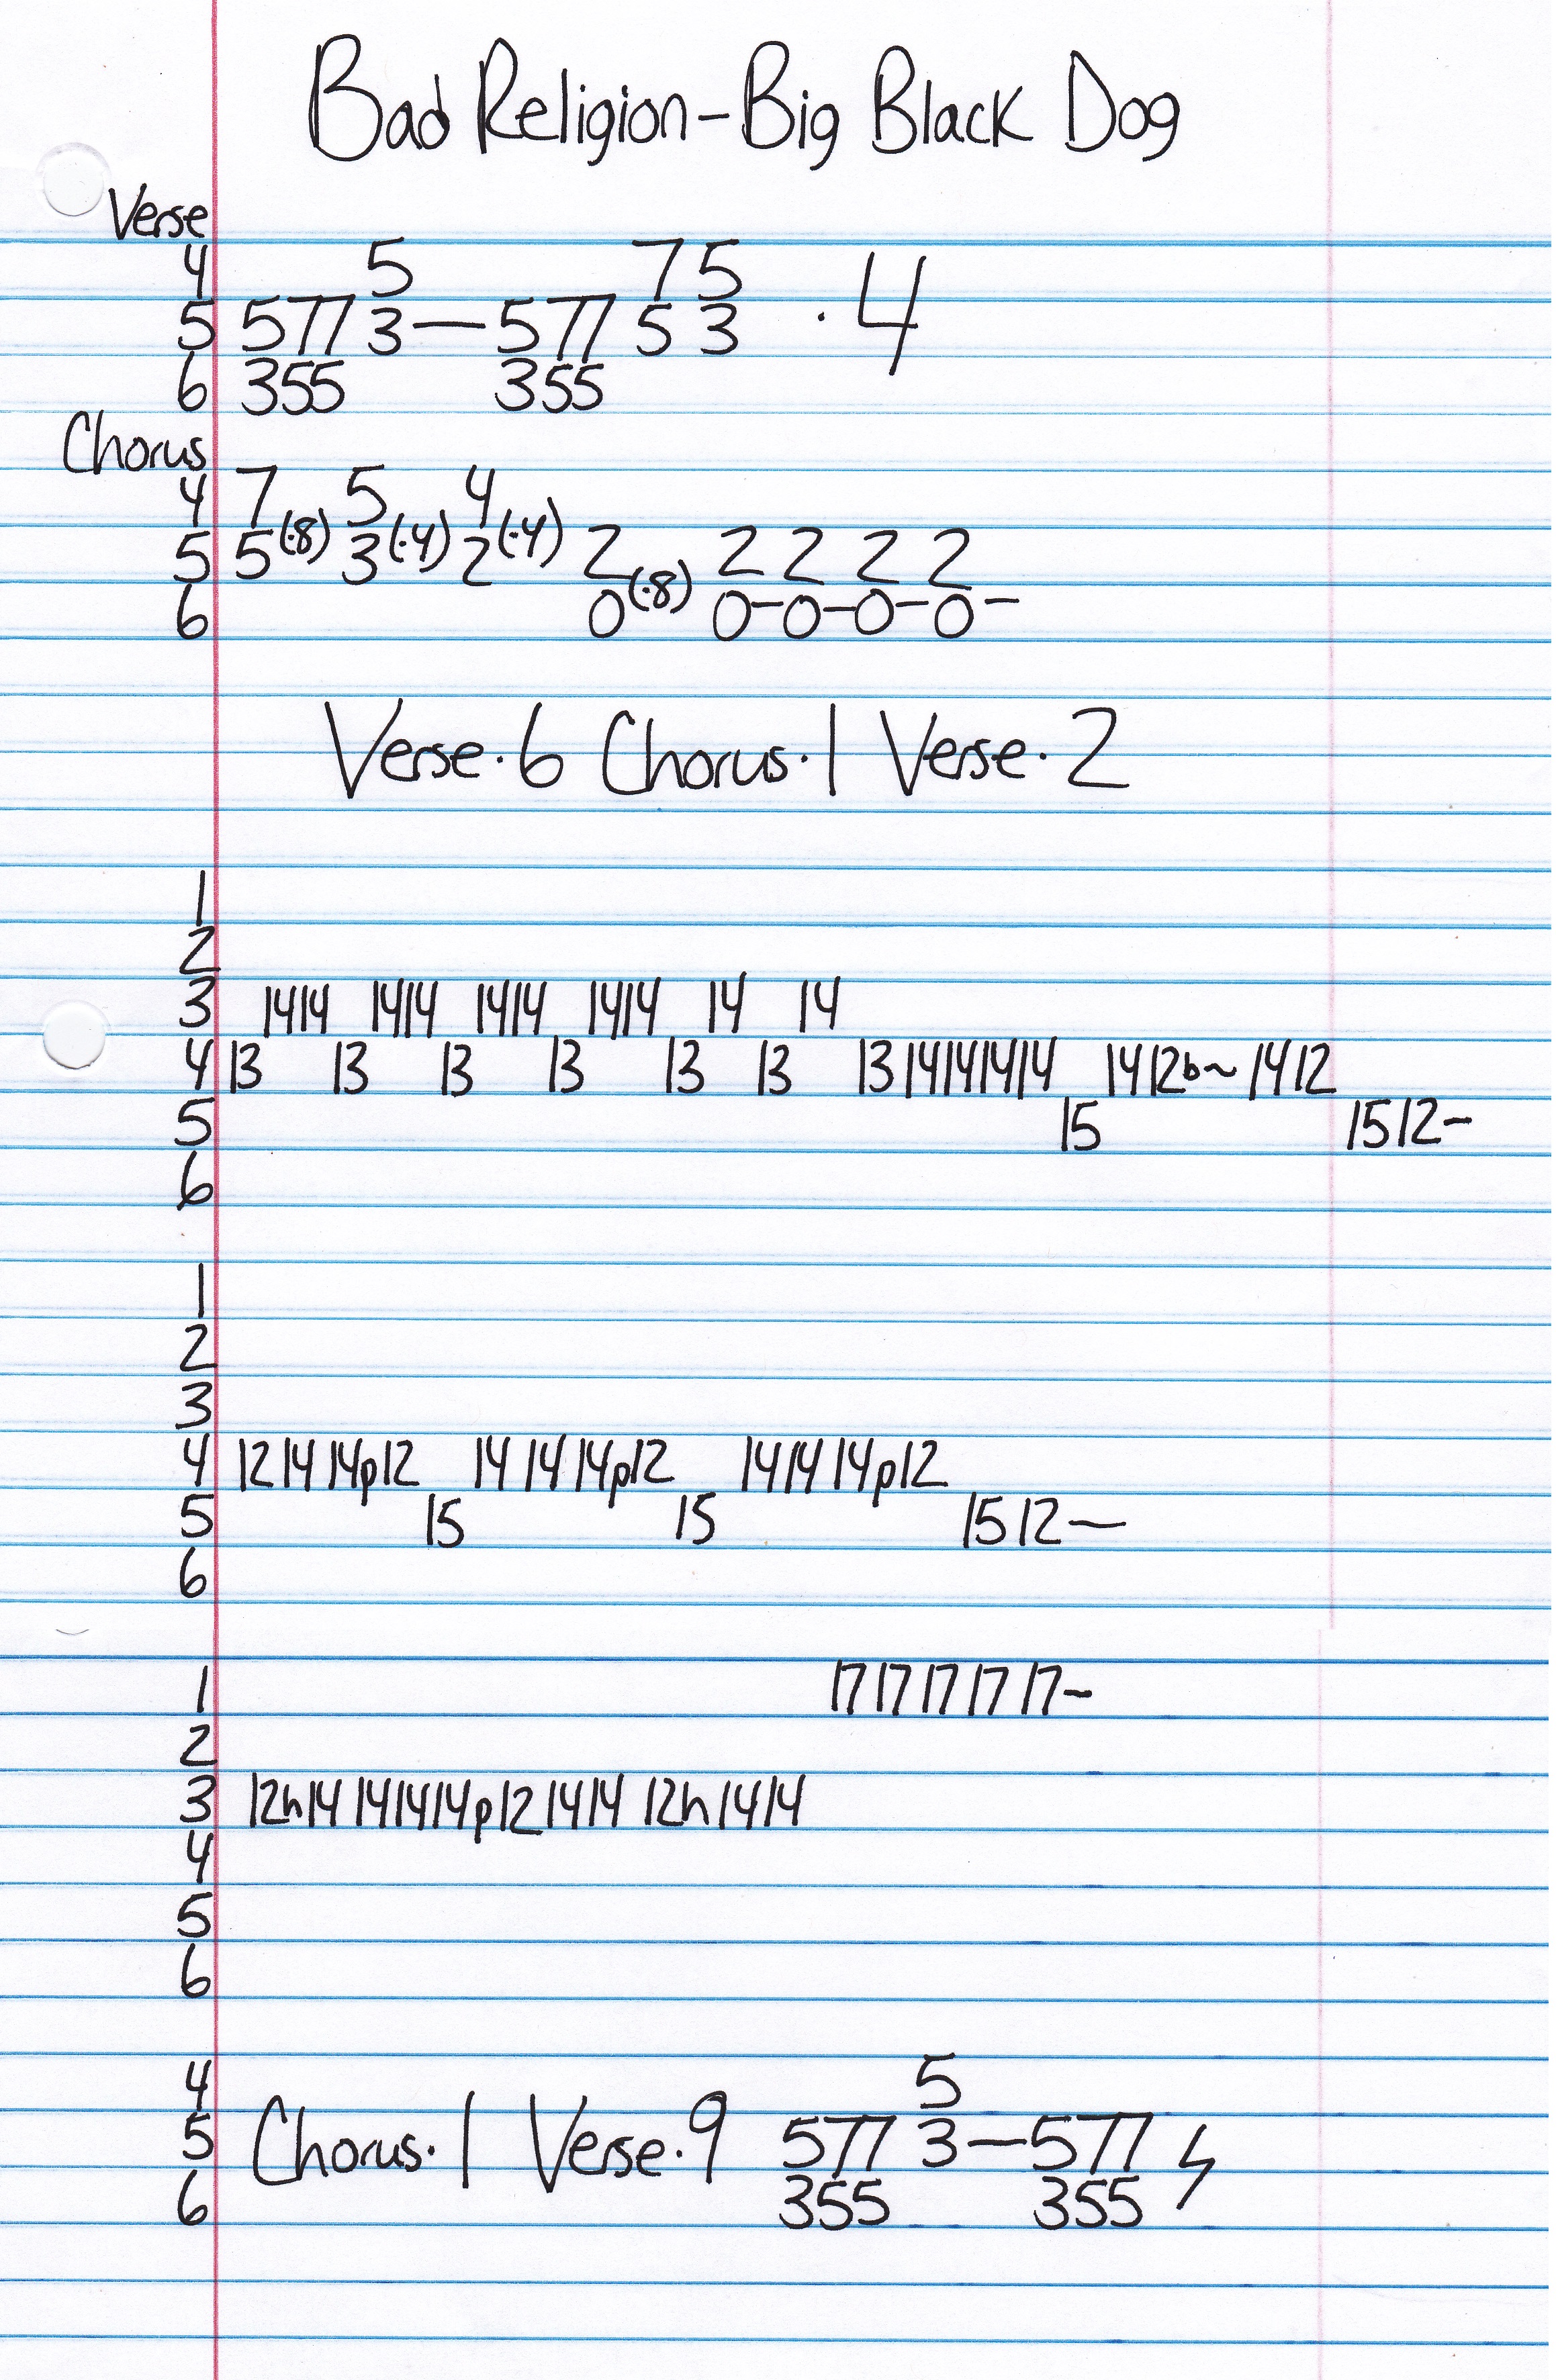 Bad Religion-Big Black Dog
Verse
4 5 75
5 577 3—577 5 3 ·4
6 355 355
Chorus
4 7 5 4
5 5(·8) 3(·4) 2(·4) 2 2 2 2 2
6 0(·8) 0-0-0-0-
Verse·6 Chorus·1 Verse·2
1
2
3 1414 1414 1414 1414 14 14
4 13 13 13 13 13 13 13 14141414 1412b~ 1412
5 15 1512-
6
1
2
3
4 1214 14p12 14 14 14p12 1414 14p12
5 15 15 15 12—
6
1 17 17 17 17 17-
2
3 12h14 141414p12 1414 12h1414
4
5
6
4 5
5 Chorus·1 Verse·9 577 3—577
6 355 355